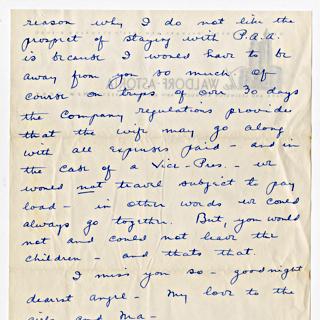 reason why I do not like the
prospect of staying with P.A.A.
is because I would have to be
away from you so much. Of
course on trips of over 30 days
the Company regulations provide
that the wife may go along
with all expenses paid - and in
the case of a Vice-Pres. - we
would not travel subject to pay
load - in other words we could
always go together. But, you would
not and could not leave the
children - and thats that.
I miss you so - goodnight
dearest angel - My love to the
girls and Ma -
WALDORF-ASTORIA